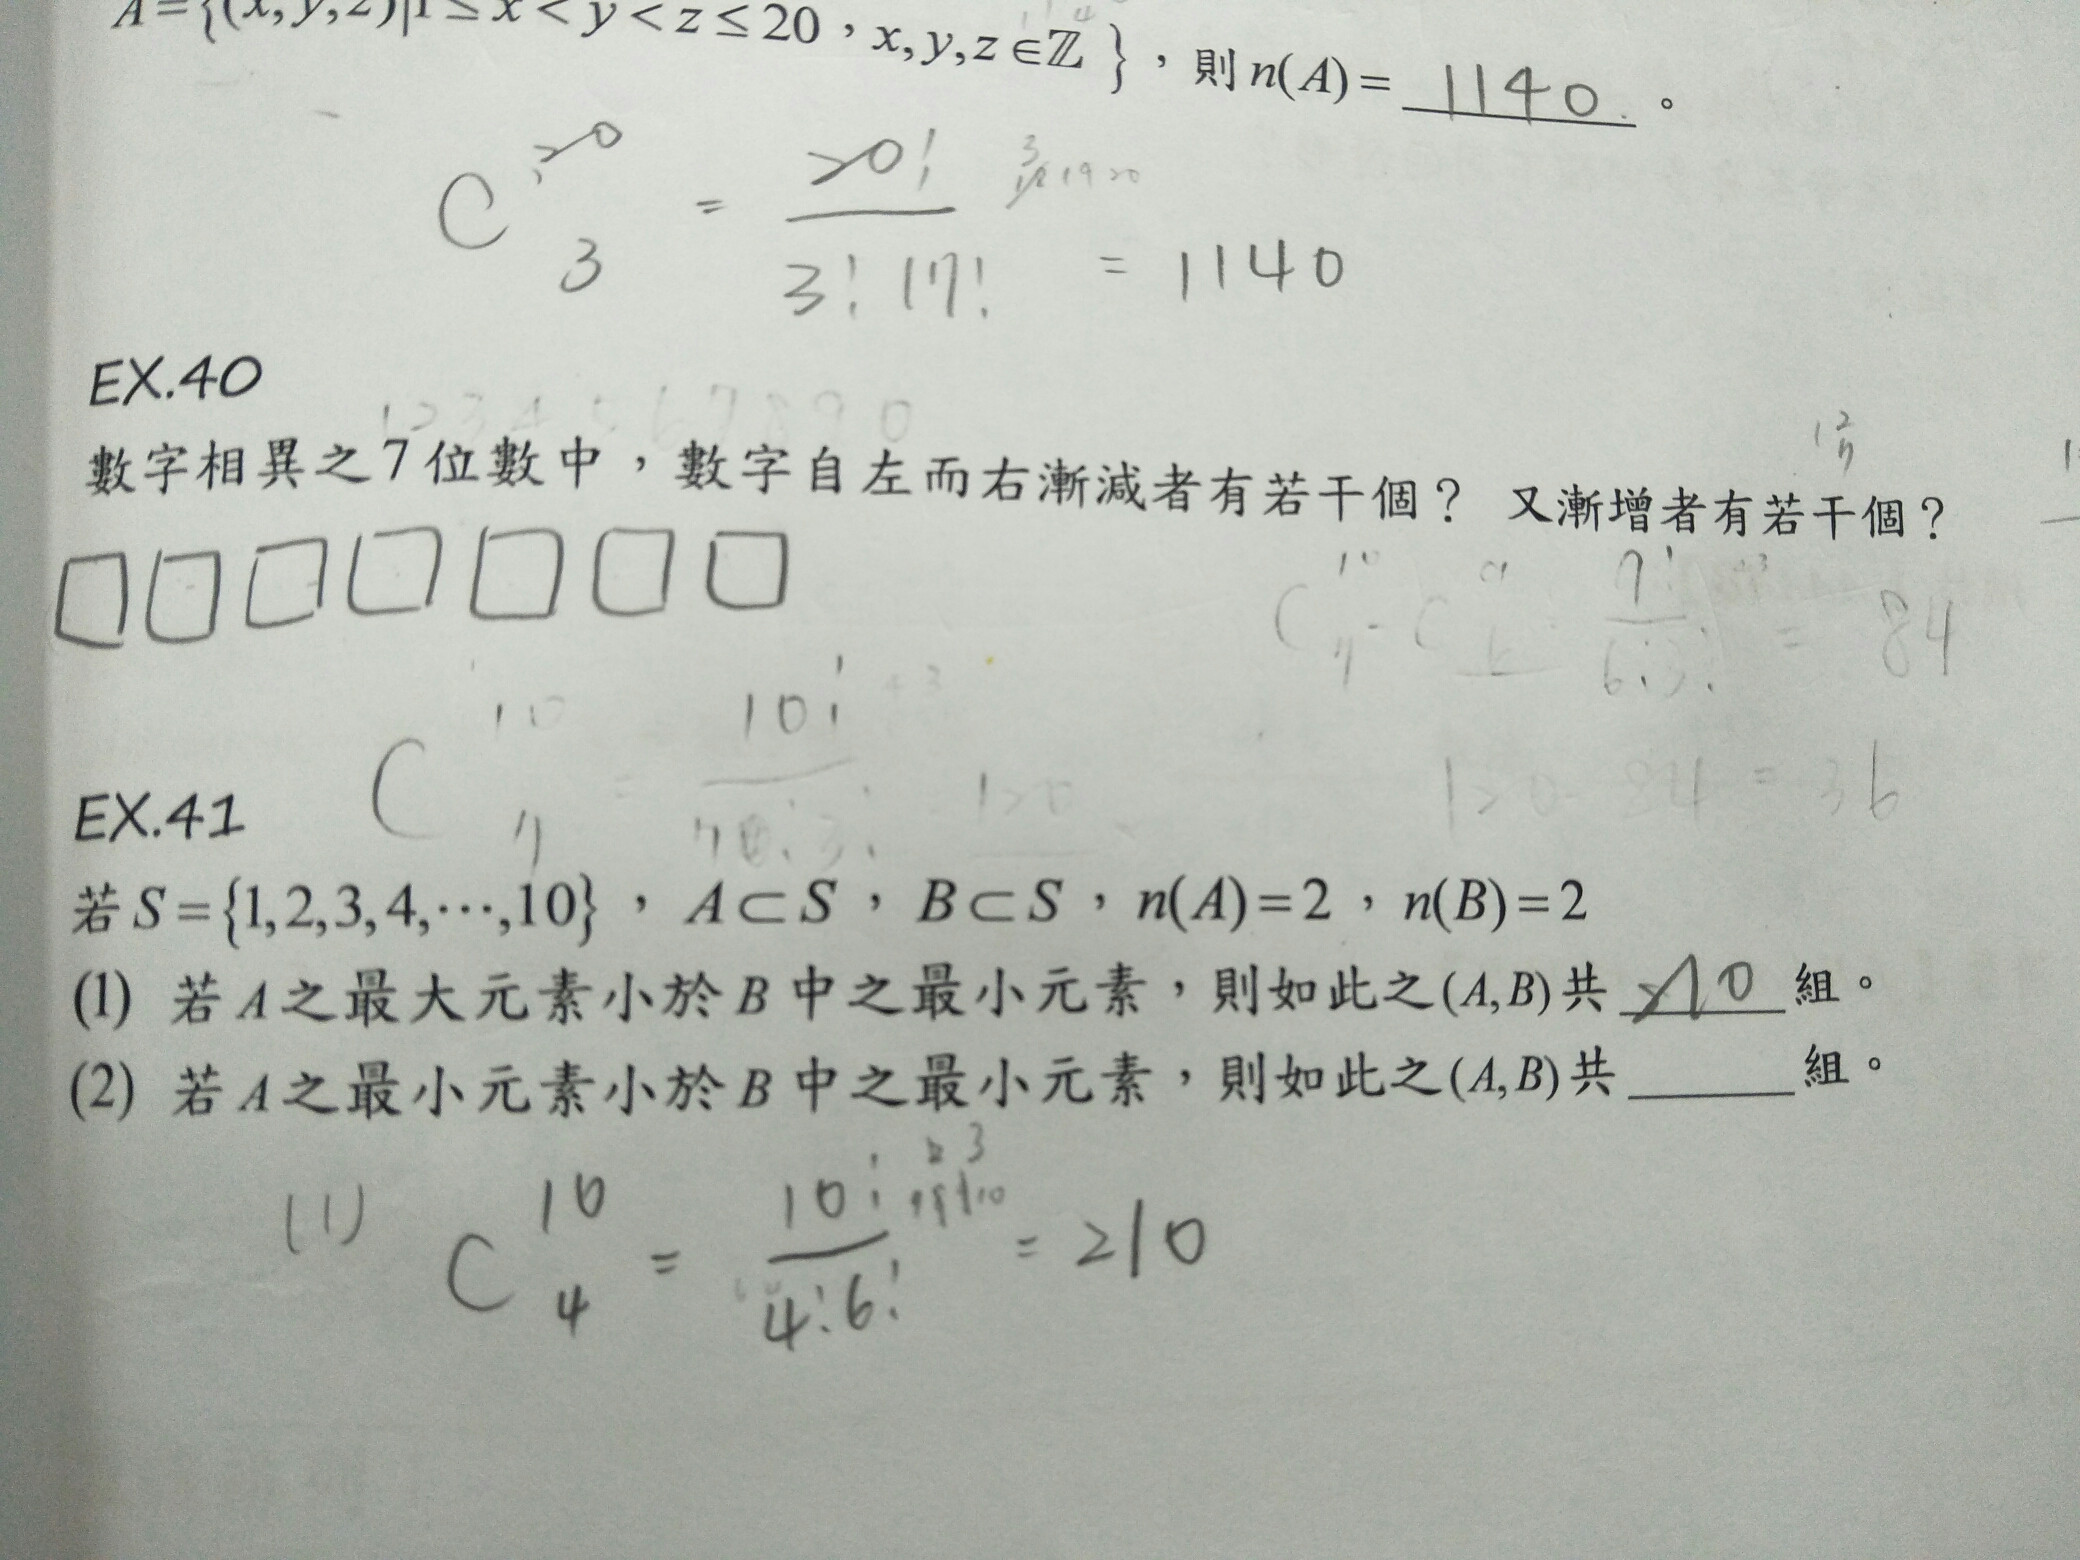 A={(x,y,z)|1≤x<y<z≤20，x,y,z∈ℤ}，則n(A)= 1140 。
C 20 3 = 20! / 3! 17! = 1140
EX.40
1 2 3 4 5 6 7 8 9 0
數字相異之7位數中，數字自左而右漸減者有若干個？ 又漸增者有若干個？
C 10 7 - C 9 6 9! / 6! 3! = 84
C 10 7 = 10! / 7! 3! 120
120 - 84 = 36
EX.41
若S={1,2,3,4,⋯,10}，A⊂S，B⊂S，n(A)=2，n(B)=2
(1) 若A之最大元素小於B中之最小元素，則如此之(A,B)共 210 組。
(2) 若A之最小元素小於B中之最小元素，則如此之(A,B)共______組。
(1) C 10 4 = 10! / 4! 6! = 210